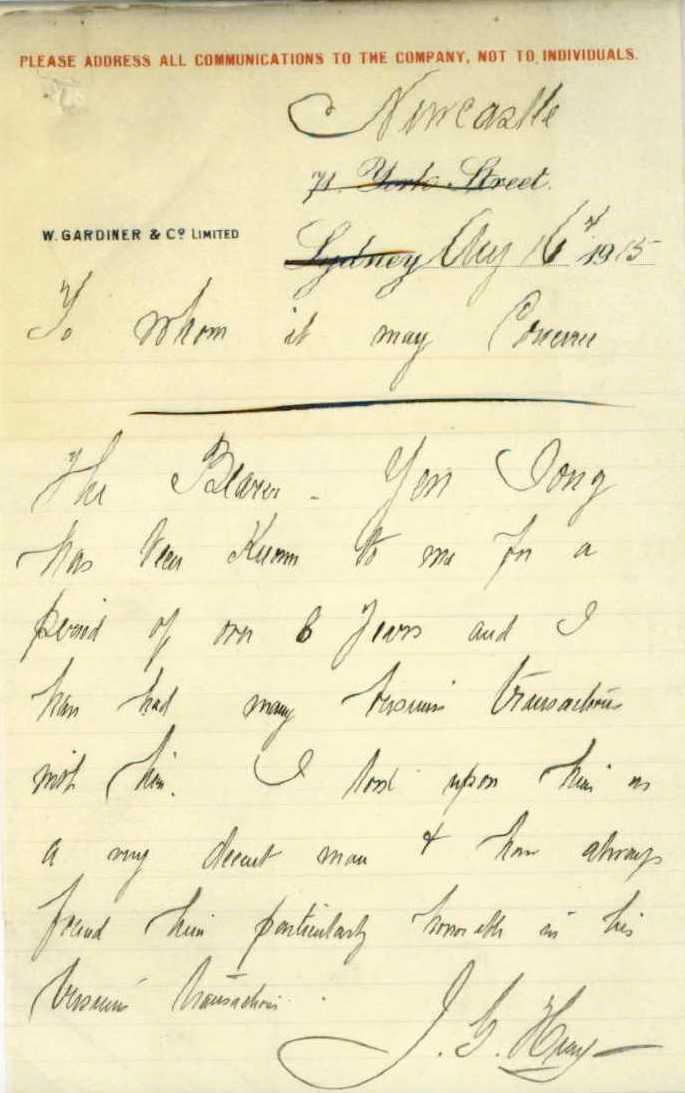 PLEASE ADDRESS ALL COMMUNICATIONS TO THE COMPANY, NOT TO INDIVIDUALS.
Newcastle
71 York Street.
W. GARDINER & Co LIMITED
Sydney Aug 16th 1915
To whom it may Concern
The Bearer - Yen
has been Known to me for a
period of over 6 Years and I
have had many business transactions
with him. I look upon him as
a very decent man & have always
found him particularly honorable in his
business transactions.
J. G.